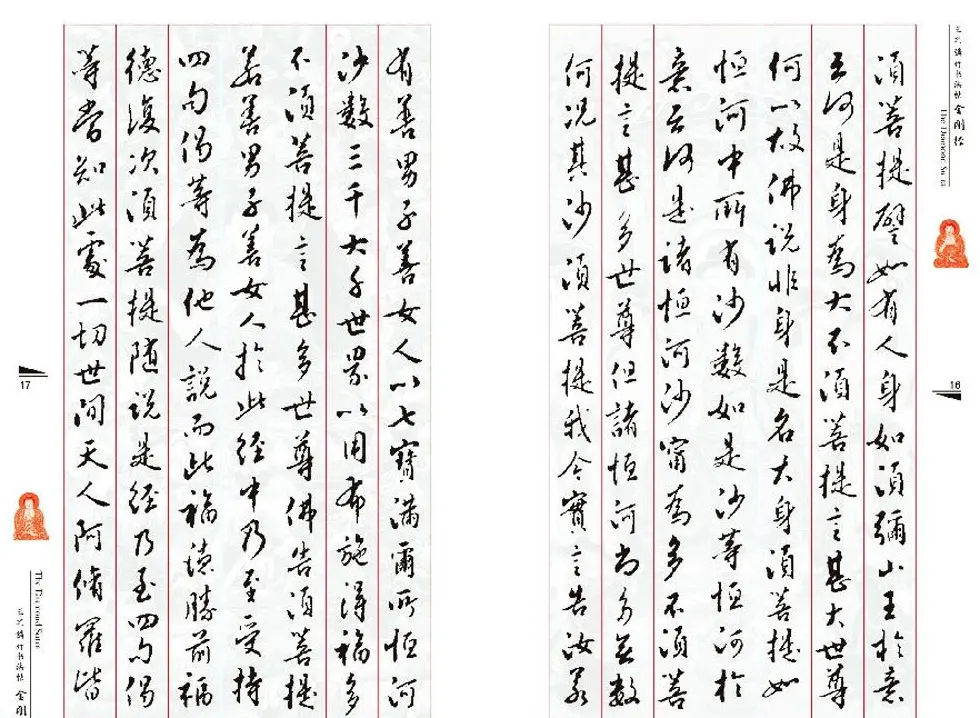 书法帖 金刚经
The Diamond Sutra
须菩提譬如有人身如须彌山王於意
云何是身為大不须菩提言甚大世尊
何以故佛说非身是名大身须菩提如
恒河中所有沙數如是沙等恒河於
意云何是诸恒河沙甯為多不须菩
提言甚多世尊但諸恒河尚多无數
何况其沙须菩提我今實言告汝若
16
有善男子善女人以七寶满爾所恒河
沙數三千大千世界以用布施得福多
不须菩提言甚多世尊佛告须菩提
若善男子善女人於此经中乃至受持
四句偈等為他人說而此福德勝前福
德復次须菩提随说是经乃至四句偈
等當知此處一切世间天人阿脩羅皆
17
The Diamond Sutra
书法帖 金刚